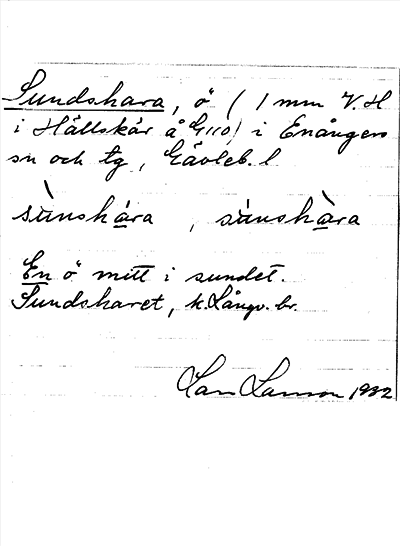 Sundshara, ö (1 mm V. H
i Hällskär å G110) i Enångers
sn och tg, Gävleb. l
sùnshára, súnshàra
En ö mitt i sundet.
Sundsharet, k. Långv. br.
Lars Larsson 1932